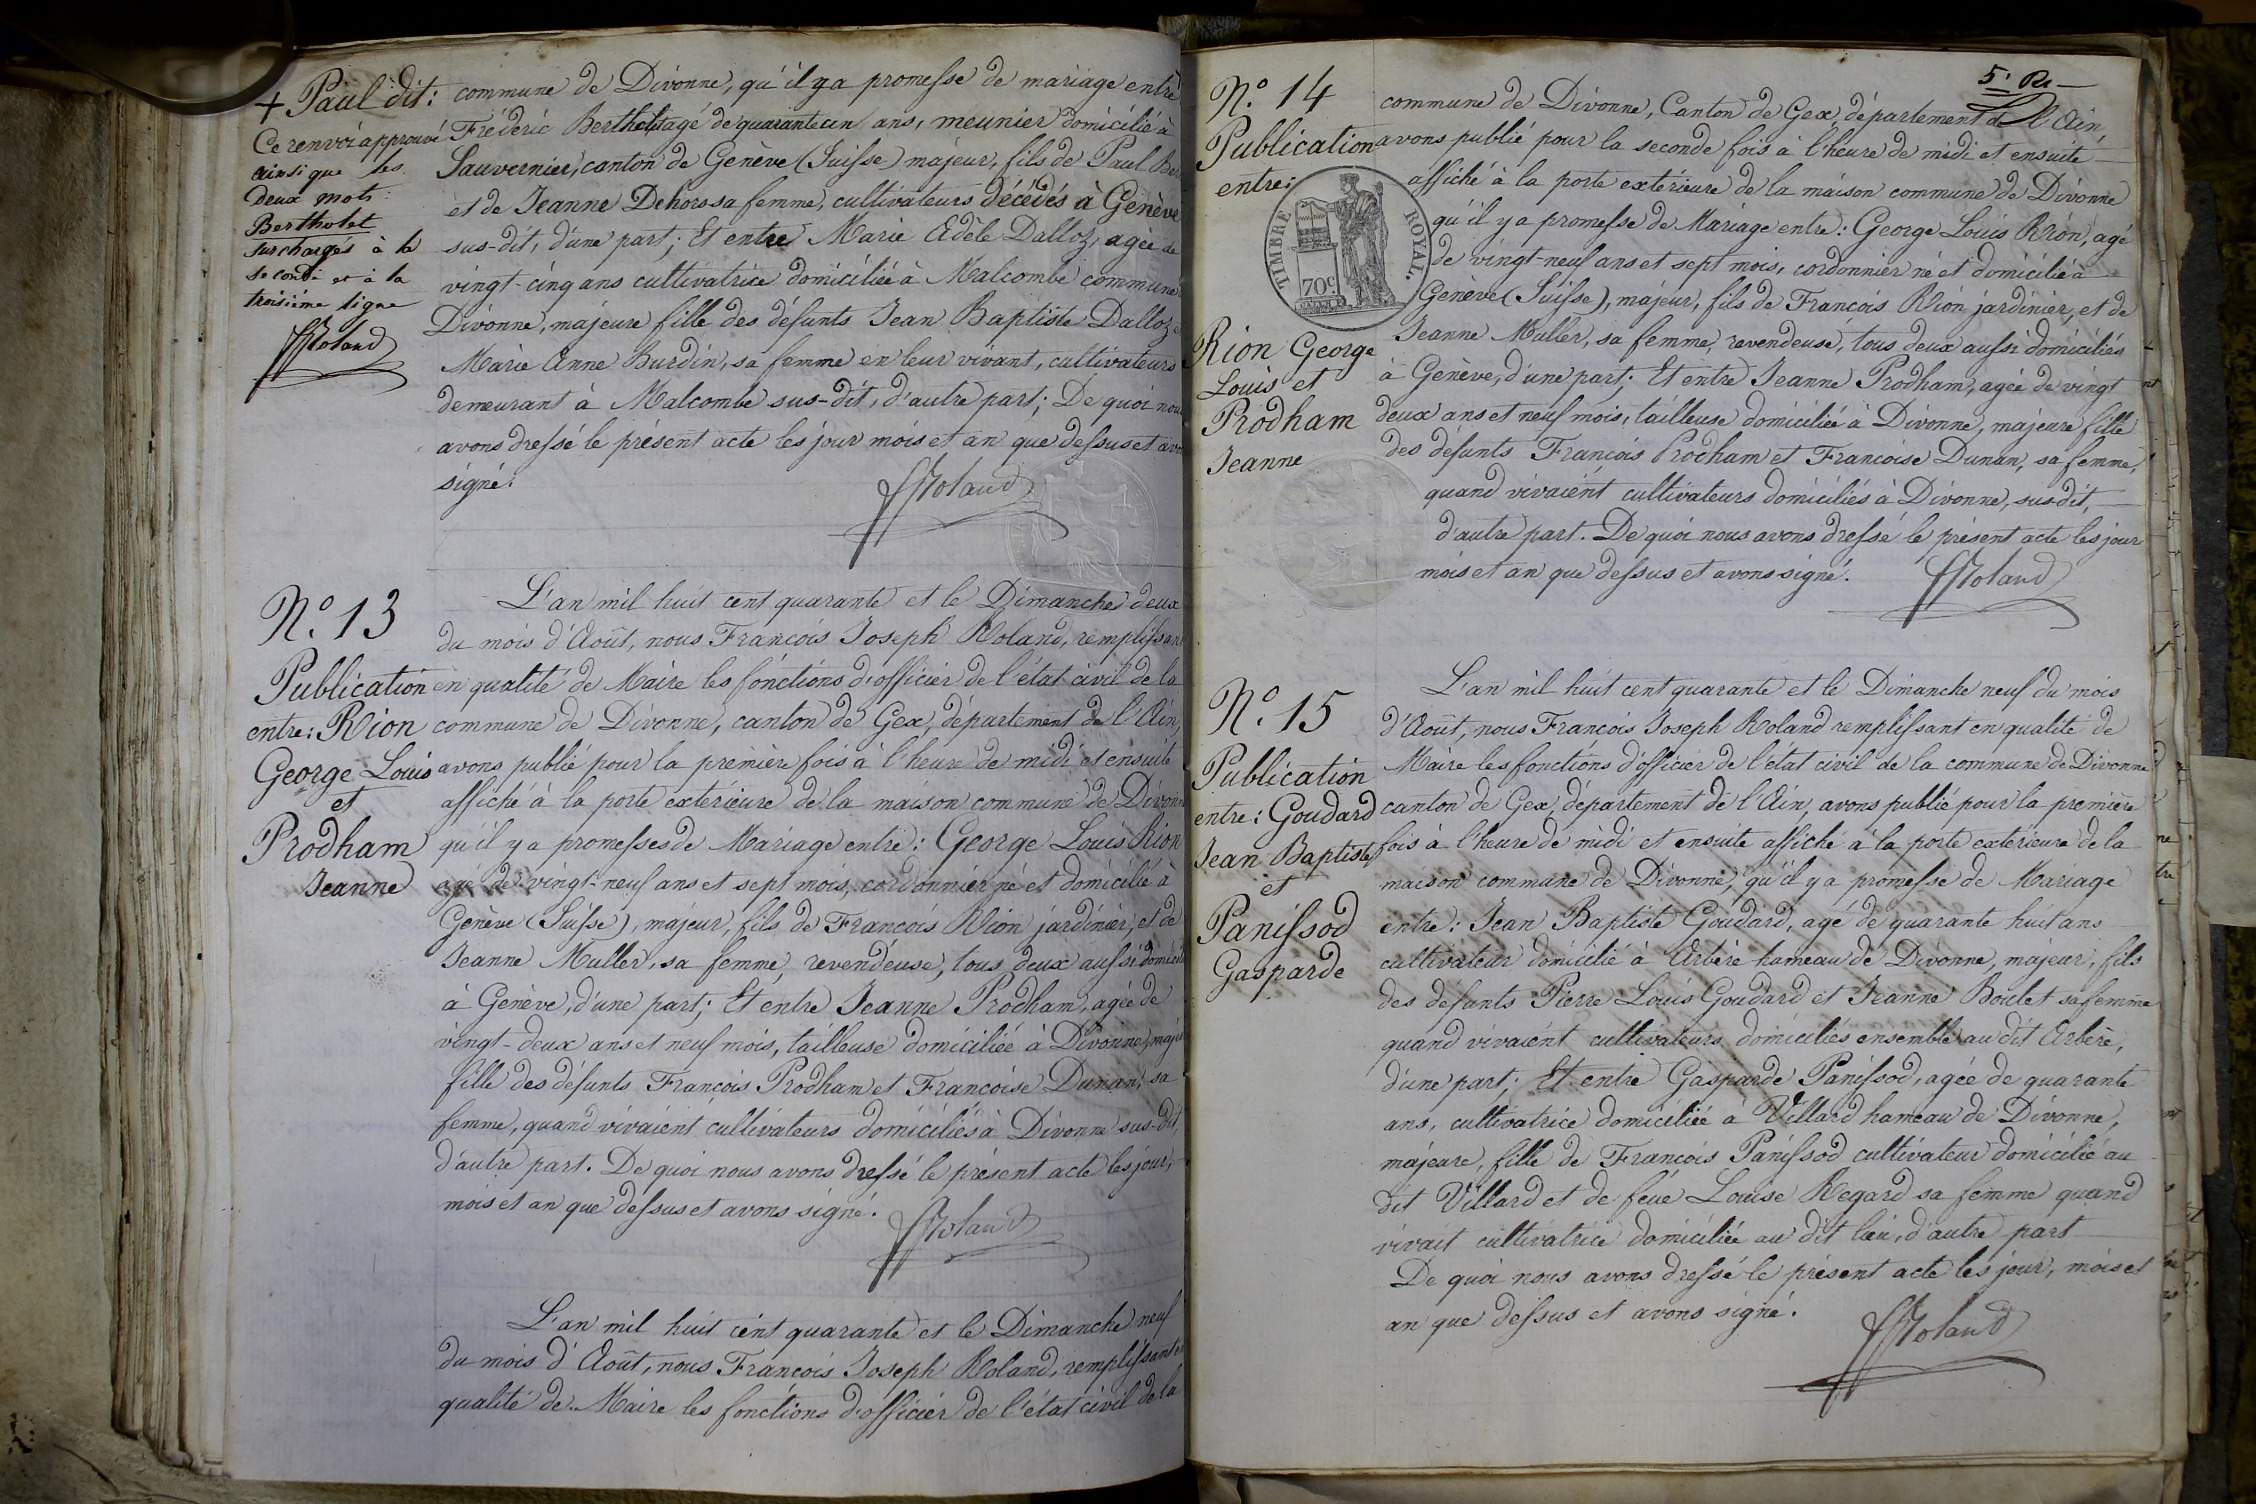 + Paul dit:
Ce renvoi approuvé
ainsi que les
deux mots:
Bertholet
surchargés à la
seconde et à la
troisième ligne
FJRoland
commune de Divonne, qu'il y a promesse de mariage entre
Fréderic Bertholet agé de quarante un ans, meunier domicilié à
Sauvernier, canton de Genève (Suisse) majeur, fils de Paul Ber
et de Jeanne Dehors sa femme, cultivateurs décédés à Genève
sus-dit, d'une part; Et entre Marie Adèle Dalloz, agée de
vingt-cinq ans cultivatrice domiciliée à Malcombe commune
Divonne, majeure fille des défunts Jean Baptiste Dalloz et
Marie Anne Burdin, sa femme en leur vivant, cultivateurs
demeurant à Malcombe sus-dit, d'autre part; De quoi nous
avons dressé le présent acte les jour mois et an que dessus et avons
signé.
FJRoland
N.º 13
Publication
entre: Rion
George Louis
et
Prodham
Jeanne
L'an mil huit cent quarante et le Dimanche deux
du mois d'Août, nous François Joseph Roland, remplissant
en qualité de Maire les fonctions d'officier de l'état civil de la
commune de Divonne, canton de Gex, département de l'Ain,
avons publié pour la première fois à l'heure de midi et ensuite
affiché à la porte extérieure de la maison commune de Divonne
qu'il y a promesses de Mariage entre: George Louis Rion
agé de vingt-neuf ans et sept mois, cordonnier né et domicilié à
Genève (Suisse), majeur, fils de François Rion jardinier, et de
Jeanne Muller, sa femme, revendeuse, tous deux aussi domiciliés
à Genève, d'une part; Et entre Jeanne Prodham, agée de
vingt-deux ans et neuf mois, tailleuse domiciliée à Divonne, majeure
fille des défunts François Prodham et Françoise Dunan, sa
femme, quand vivaient cultivateurs domiciliés à Divonne sus-dit,
d'autre part. De quoi nous avons dressé le présent acte les jour,
mois et an que dessus et avons signé.
FJRoland
L'an mil huit cent quarante et le Dimanche neuf
du mois d'Août, nous François Joseph Roland, remplissant en
qualité de Maire les fonctions d'officier de l'état civil de la
5. R.
N.º 14
Publication
entre:
TIMBRE ROYAL.
70c
Rion George
Louis et
Prodham
Jeanne
commune de Divonne, Canton de Gex, département de l'Ain,
avons publié pour la seconde fois à l'heure de midi et ensuite
affiché à la porte extérieure de la maison commune de Divonne
qu'il y a promesse de Mariage entre: George Louis Rion, agé
de vingt-neuf ans et sept mois, cordonnier né et domicilié à
Genève (Suisse), majeur, fils de François Rion jardinier, et de
Jeanne Muller, sa femme, revendeuse, tous deux aussi domiciliés
à Genève, d'une part; Et entre Jeanne Prodham, agée de vingt
deux ans et neuf mois, tailleuse domiciliée à Divonne, majeure fille
des défunts François Prodham et Françoise Dunan, sa femme,
quand vivaient cultivateurs domiciliés à Divonne, sus-dit,
d'autre part. De quoi nous avons dressé le présent acte les jour
mois et an que dessus et avons signé.
FJRoland
N.º 15
Publication
entre: Goudard
Jean Baptiste
et
Panissod
Gasparde
L'an mil huit cent quarante et le Dimanche neuf du mois
d'Août, nous François Joseph Roland remplissant en qualité de
Maire les fonctions d'officier de l'état civil de la commune de Divonne
canton de Gex, département de l'Ain, avons publié pour la première
fois à l'heure de midi et ensuite affiché à la porte extérieure de la
maison commune de Divonne, qu'il y a promesse de Mariage
entre: Jean Baptiste Goudard, agé de quarante huit ans
cultivateur domicilié à Arbère hameau de Divonne, majeur, fils
des défunts Pierre Louis Goudard et Jeanne Boulet sa femme
quand vivaient cultivateurs domiciliés ensemble au dit Arbère,
d'une part; Et entre Gasparde Panissod, agée de quarante
ans, cultivatrice domiciliée à Villard hameau de Divonne,
majeure, fille de François Panissod cultivateur domicilié au
dit Villard et de feue Louise Regard sa femme quand
vivait cultivatrice domiciliée au dit lieu, d'autre part
De quoi nous avons dressé le présent acte les jour, mois et
an que dessus et avons signé.
FJRoland